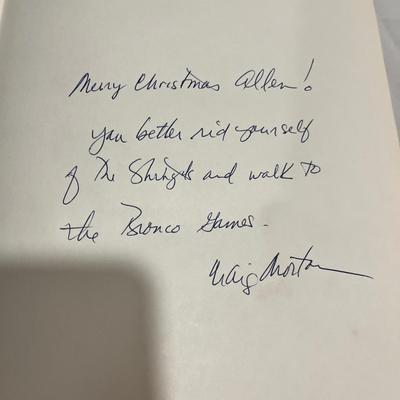 Merry Christmas Allen!
you better rid yourself
of The Shingles and walk to
the Bronco Games.
Craig Morton